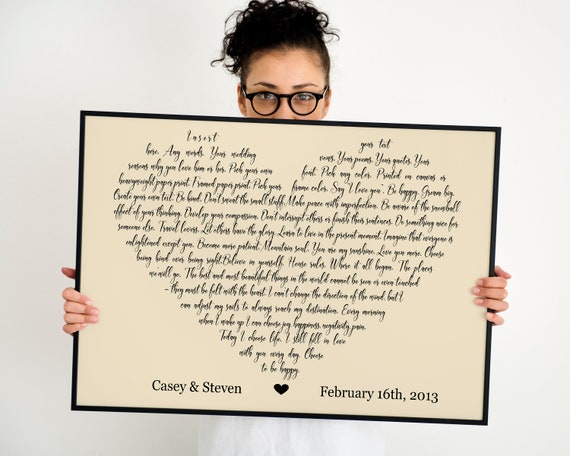 Insert your text
here. Any words. Your wedding vows. Your poems. Your quotes. Your
reasons why you love him or her. Pick your own font. Pick any color. Printed on canvas or
heavyweight paper print. Framed paper print. Pick your frame color. Say 'I love you'. Be happy. Dream big.
Create your own text. Be kind. Don't sweat the small stuff. Make peace with imperfection. Be aware of the snowball
effect of your thinking. Develop your compassion. Don't interrupt others or finish their sentences. Do something nice for
someone else. Travel lovers. Let others have the glory. Learn to live in the present moment. Imagine that everyone is
enlightened except you. Become more patient. Mountain soul. You are my sunshine. Love you more. Choose
being kind over being right. Believe in yourself. House rules. Where it all began. The places
we will go. The best and most beautiful things in the world cannot be seen or even touched
- they must be felt with the heart. I can't change the direction of the wind, but I
can adjust my sails to always reach my destination. Every morning
when I wake up I can choose joy, happiness, negativity, pain.
Today I choose life. I still fall in love
with you every day. Choose
to be happy.
Casey & Steven ♥ February 16th, 2013